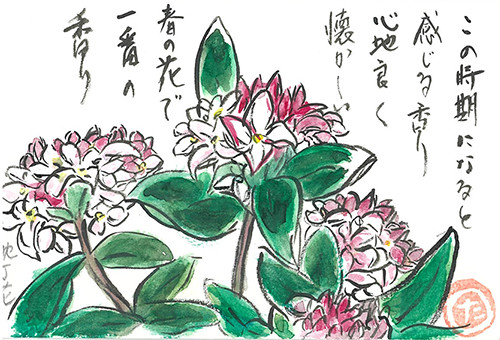 この時期になると
感じる香り
心地良く
懐かしい
春の花で
一番の
香り
た